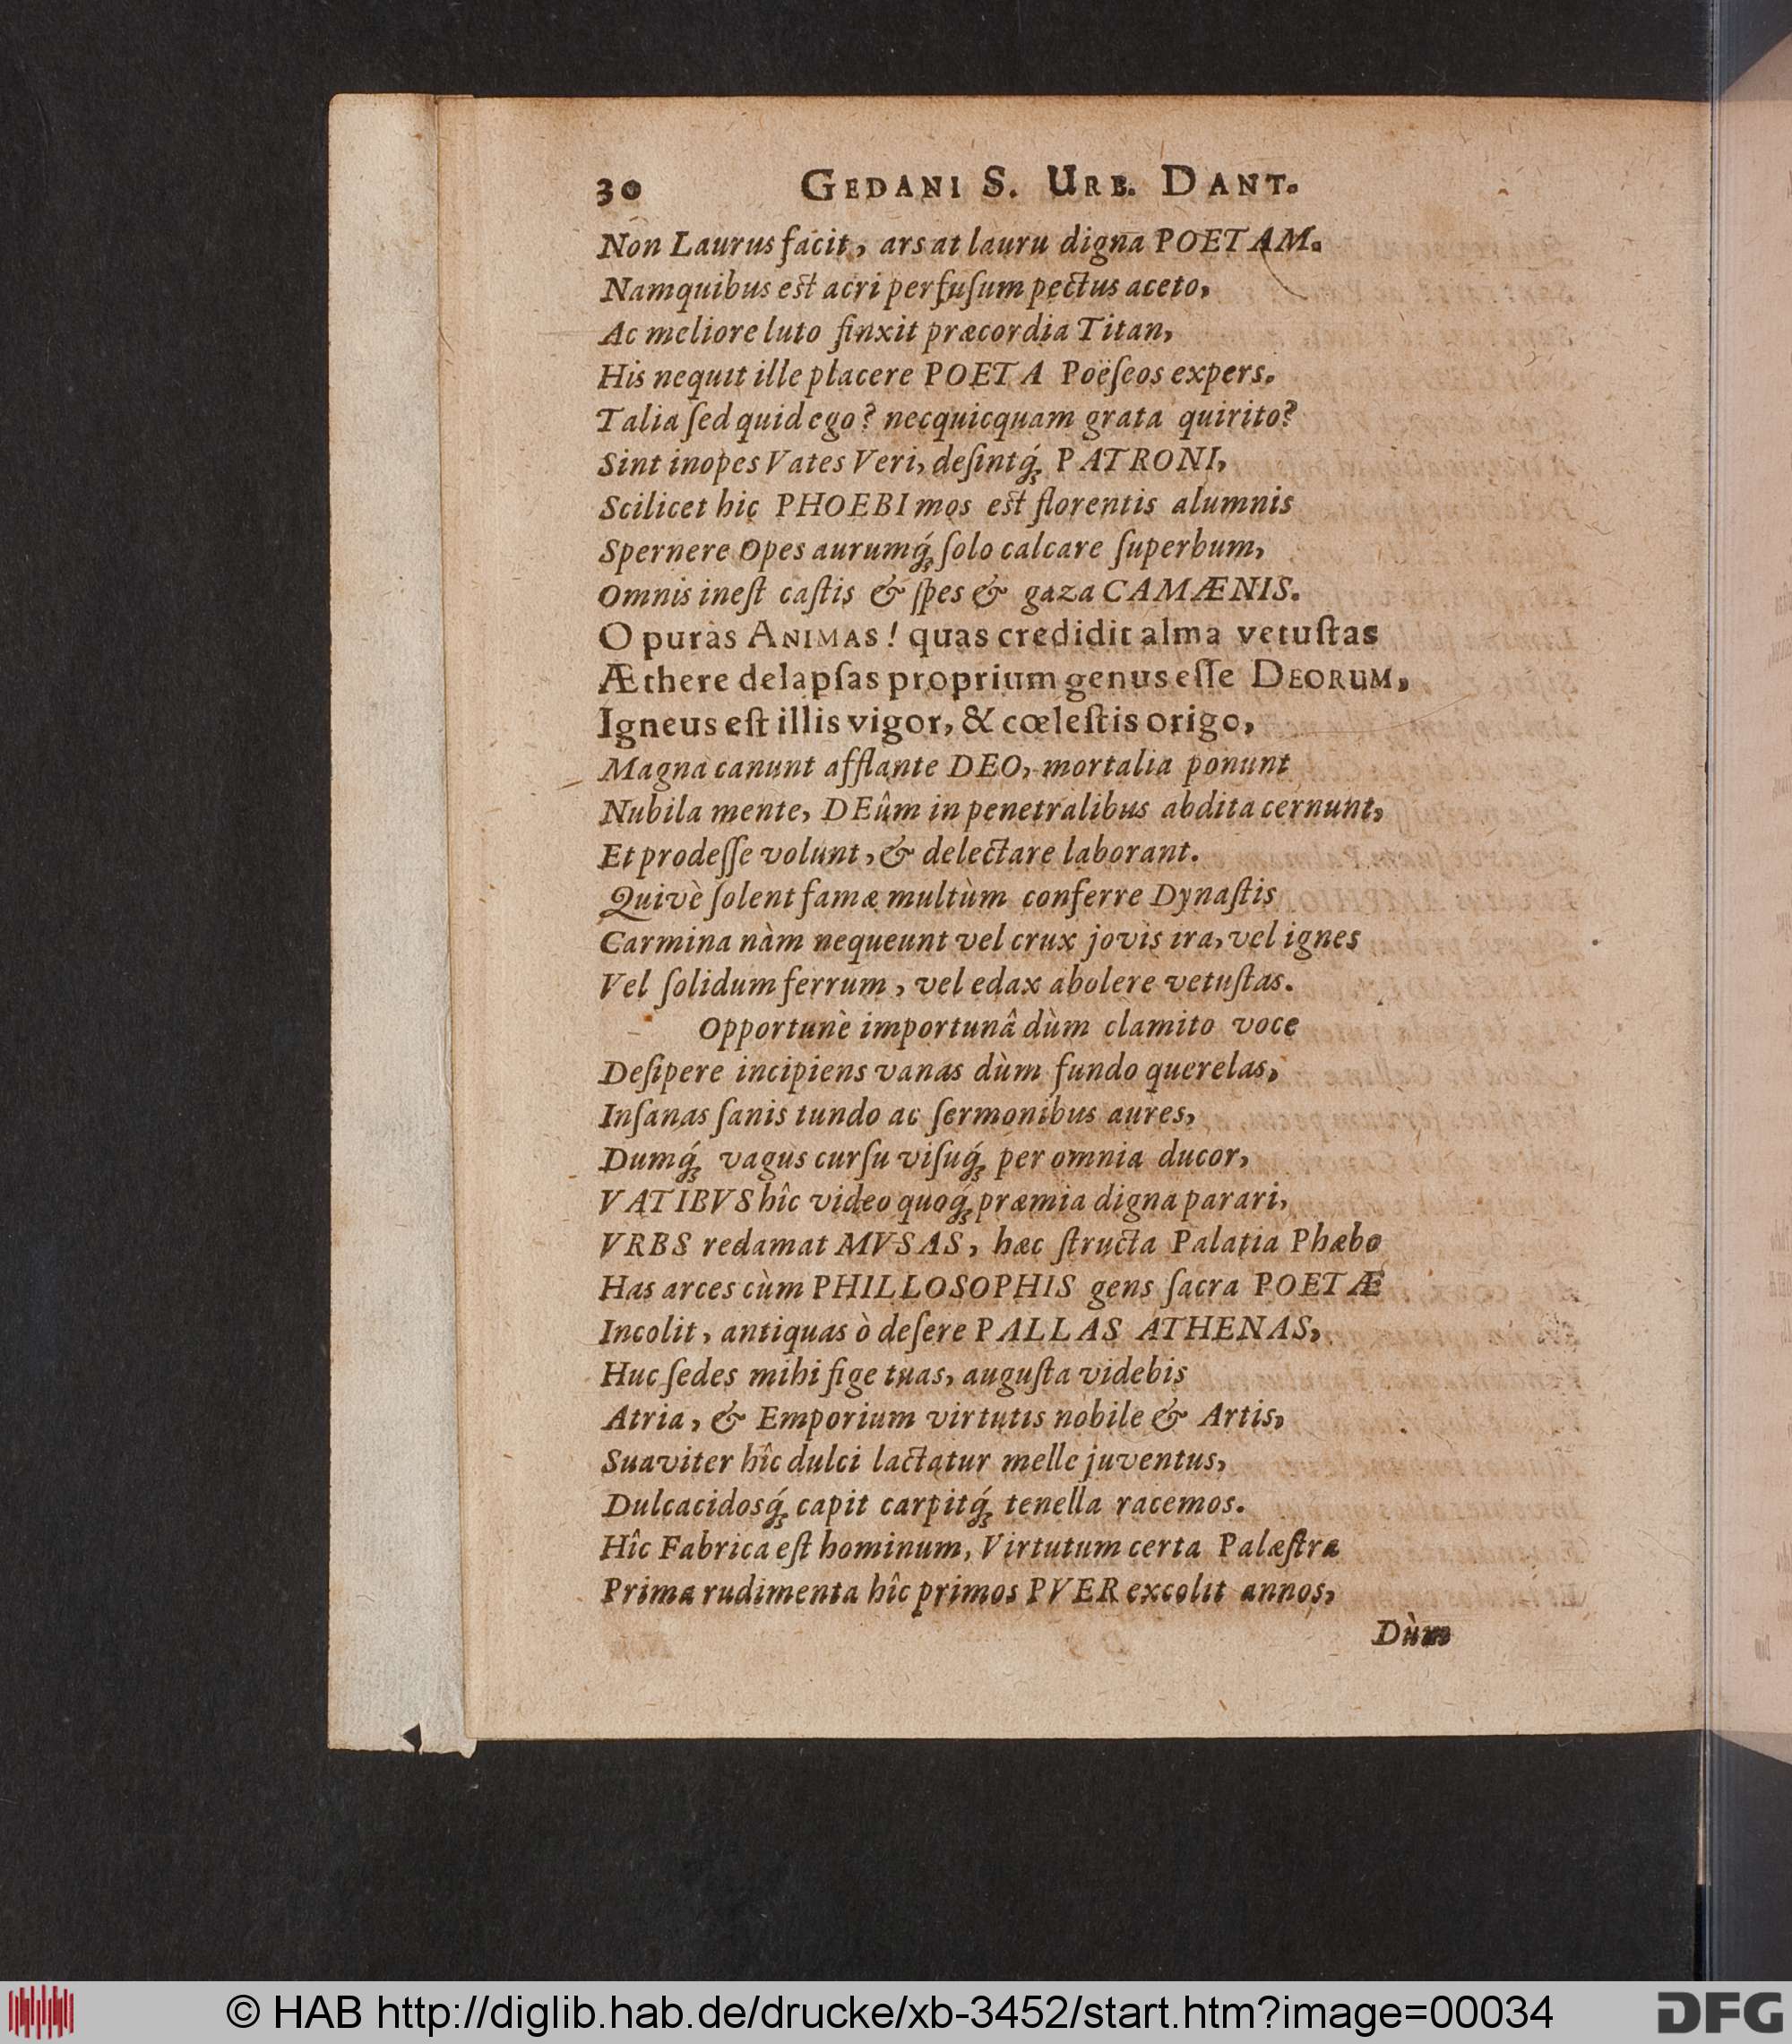 30 GEDANI S. URB. DANT.
Non Laurus facit, ars at lauru digna POETAM.
Namquibus est acri perfuſum pectus aceto,
Ac meliore luto finxit præcordia Titan,
His nequit ille placere POETA Poëſeos expers.
Talia ſed quid ego? necquicquam grata quirito?
Sint inopes Vates Veri, deſintq́; PATRONI,
Scilicet hic PHOEBI mos est florentis alumnis
Spernere Opes aurumq́; ſolo calcare ſuperbum,
Omnis ineſt caſtis & ſpes & gaza CAMÆNIS.
O puràs ANIMAS! quas credidit alma vetuſtas
Æthere delapſas proprium genus eſſe DEORUM,
Igneus eſt illis vigor, & cœleſtis origo,
Magna canunt afflante DEO, mortalia ponunt
Nubila mente, DEûm in penetralibus abdita cernunt,
Et prodeſſe volunt, & delectare laborant.
Quivè ſolent famæ multùm conferre Dynaſtis
Carmina nàm nequeunt vel crux jovis ira, vel ignes
Vel ſolidum ferrum, vel edax abolere vetuſtas.
Opportunè importunâ dùm clamito voce
Deſipere incipiens vanas dùm fundo querelas,
Inſanas ſanis tundo ac ſermonibus aures,
Dumq́; vagus curſu viſuq́; per omnia ducor,
VATIBVS hîc video quoq́; præmia digna parari,
VRBS redamat MVSAS, hæc ſtructa Palatia Phæbo
Has arces cùm PHILLOSOPHIS gens ſacra POETÆ
Incolit, antiquas ò deſere PALLAS ATHENAS,
Huc ſedes mihi fige tuas, auguſta videbis
Atria, & Emporium virtutis nobile & Artis,
Suaviter hîc dulci lactatur melle juventus,
Dulcacidosq́; capit carpitq́; tenella racemos.
Hîc Fabrica eſt hominum, Virtutum certa Palæſtra
Prima rudimenta hîc primos PVER excolit annos,
Dùm
© HAB http://diglib.hab.de/drucke/xb-3452/start.htm?image=00034
DFG